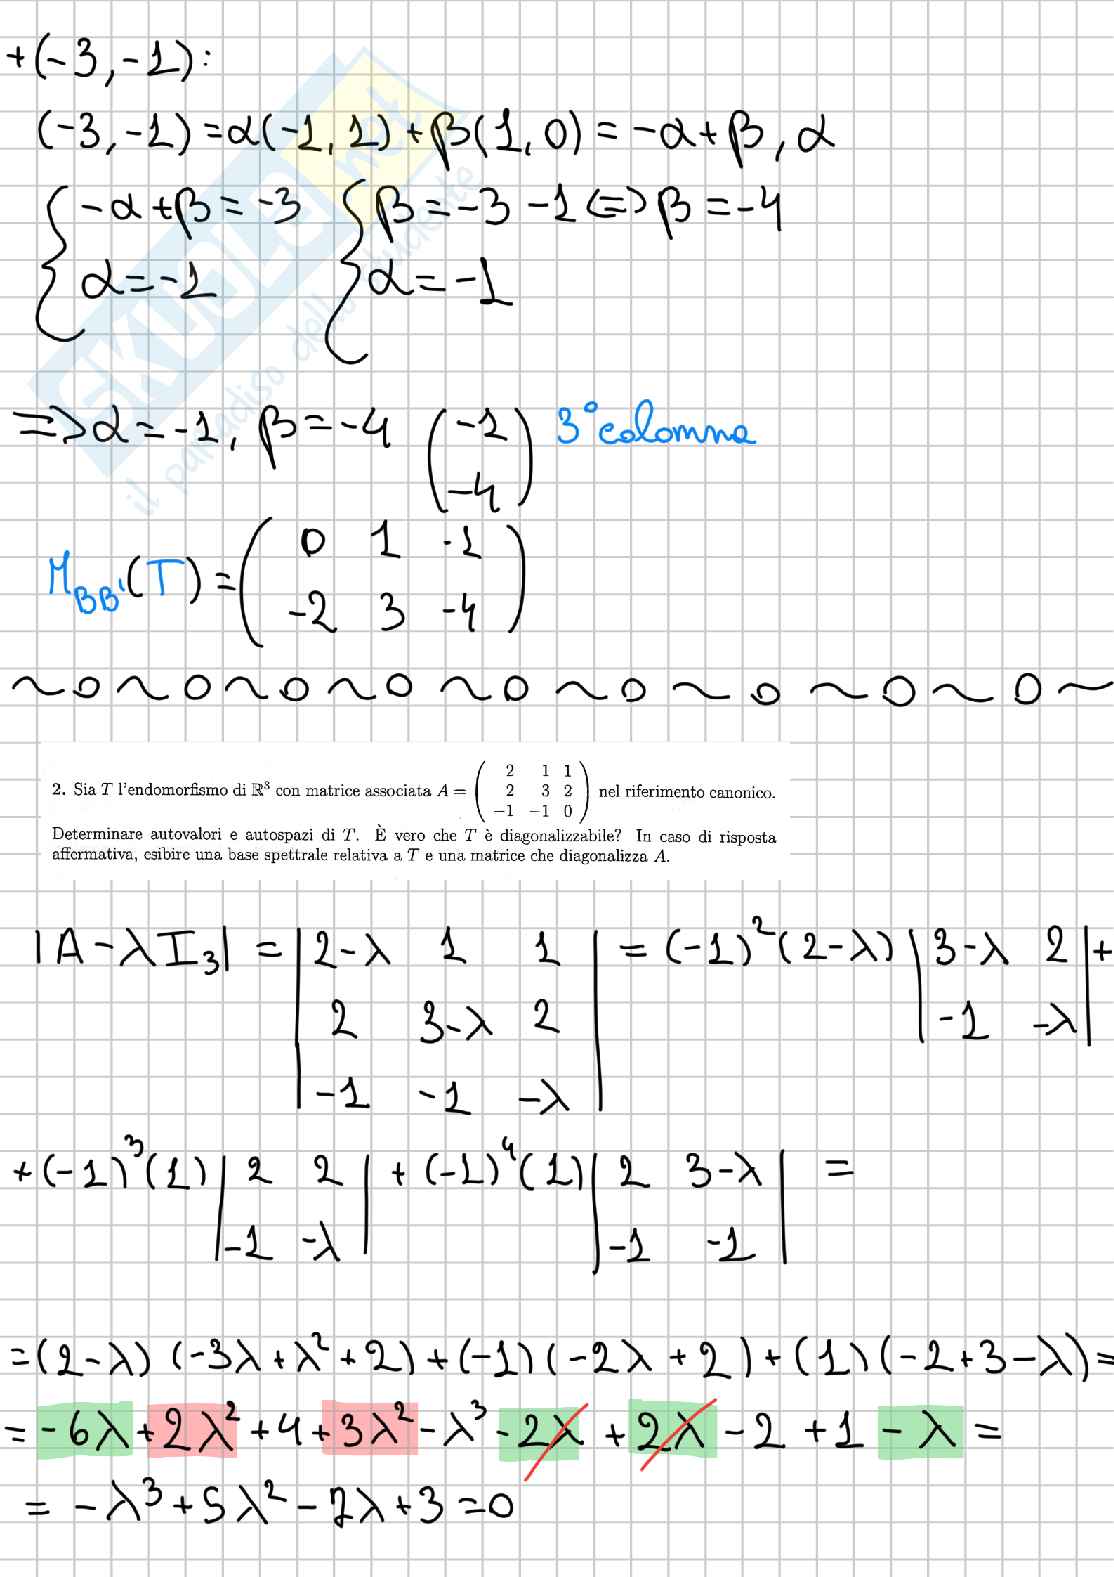 +(-3,-1):
(-3,-1)=α(-1,1)+β(1,0)=-α+β,α
{-α+β=-3 {β=-3-1⇔β=-4
α=-1 α=-1
⇒α=-1, β=-4 (-1 3°colonna
-4)
M_BB'(T)=(0 1 -1
-2 3 -4)
~o~o~o~o~o~o~o~o~o~
2. Sia T l'endomorfismo di ℝ³ con matrice associata A = ( 2 1 1 ; 2 3 2 ; −1 −1 0 ) nel riferimento canonico.
Determinare autovalori e autospazi di T. È vero che T è diagonalizzabile? In caso di risposta
affermativa, esibire una base spettrale relativa a T e una matrice che diagonalizza A.
|A-λI₃| = |2-λ 1 1| = (-1)²(2-λ)|3-λ 2|+
|2 3-λ 2| |-1 -λ|
|-1 -1 -λ|
+(-1)³(1)|2 2|+(-1)⁴(1)|2 3-λ| =
|-1 -λ| |-1 -1|
=(2-λ)(-3λ+λ²+2)+(-1)(-2λ+2)+(1)(-2+3-λ)=
=-6λ+2λ²+4+3λ²-λ³-2λ+2λ-2+1-λ=
= -λ³+5λ²-7λ+3=0
SKUOLA.net
il paradiso dello studente